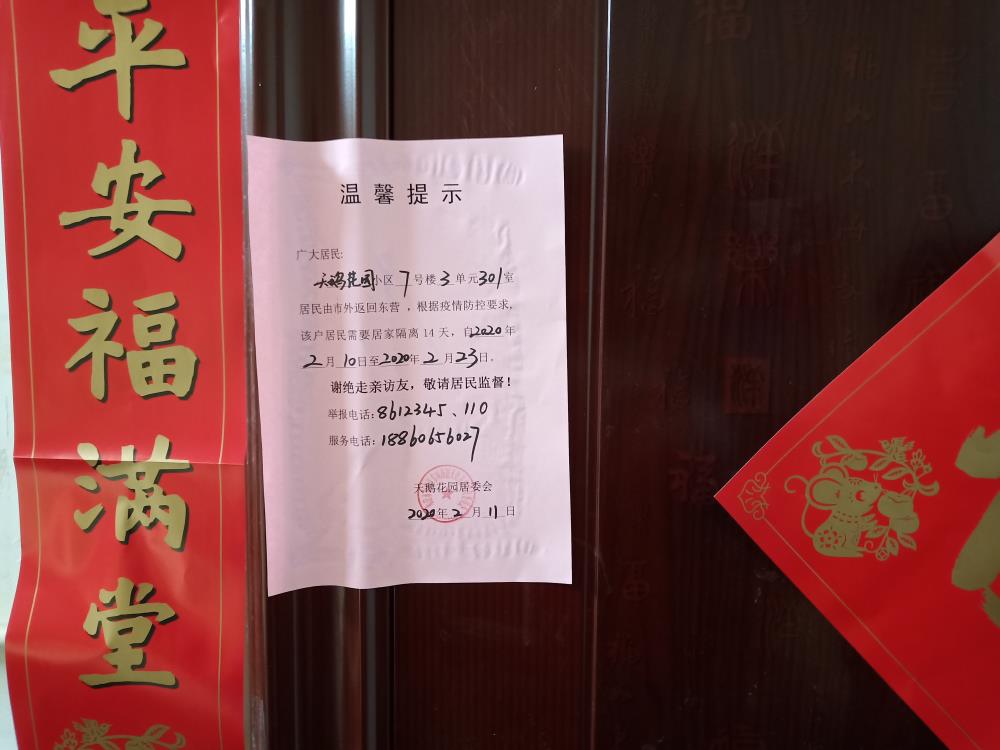 平安福满堂
温馨提示
广大居民:
天鹅花园小区 7 号楼 3 单元 301 室
居民由市外返回东营，根据疫情防控要求,
该户居民需要居家隔离 14 天，自2020年
2 月 10 日至2020年 2 月 23 日。
谢绝走亲访友，敬请居民监督！
举报电话：8612345、110
服务电话：18860656027
天鹅花园居委会
2020年 2 月 11 日